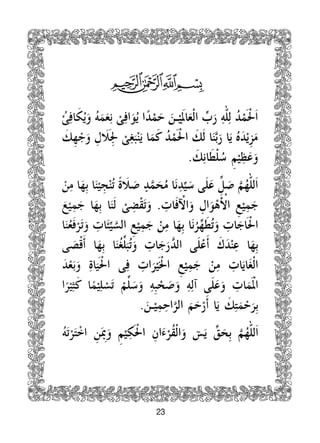 بِسْمِ اللهِ الرَّحْمٰنِ الرَّحِيْمِ
اَلْحَمْدُ لِلّٰهِ رَبِّ الْعَالَمِيْنَ حَمْدًا يُوَافِىْ نِعَمَهُ وَيُكَافِئُ
مَزِيْدَهُ يَا رَبَّنَا لَكَ الْحَمْدُ كَمَا يَنْبَغِىْ لِجَلَالِ وَجْهِكَ
وَعَظِيْمِ سُلْطَانِكَ.
اَللّٰهُمَّ صَلِّ عَلَى سَيِّدِنَا مُحَمَّدٍ صَلَاةً تُنْجِيْنَا بِهَا مِنْ
جَمِيْعِ الْأَهْوَالِ وَالْآفَاتِ. وَتَقْضِىْ لَنَا بِهَا جَمِيْعَ
الْحَاجَاتِ وَتُطَهِّرُنَا بِهَا مِنْ جَمِيْعِ السَّيِّئَاتِ وَتَرْفَعُنَا
بِهَا عِنْدَكَ أَعْلَى الدَّرَجَاتِ وَتُبَلِّغُنَا بِهَا أَقْصَى
الْغَايَاتِ مِنْ جَمِيْعِ الْخَيْرَاتِ فِى الْحَيَاةِ وَبَعْدَ
الْمَمَاتِ وَعَلَى آلِهِ وَصَحْبِهِ وَسَلِّمْ تَسْلِيْمًا كَثِيْرًا
بِرَحْمَتِكَ يَا أَرْحَمَ الرَّاحِمِيْنَ.
اَللّٰهُمَّ بِحَقِّ يٰسٓ وَالْقُرْءَانِ الْحَكِيْمِ وَبِمَنِ اخْتَرْتَهُ
23